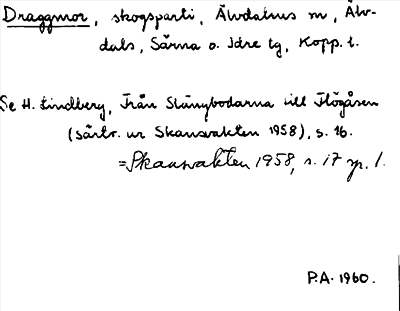 Draggmor, skogsparti, Älvdalens m, Älv-
dals, Särna o. Idre tg, Kopp. l.
Se H. Lindberg, Från Slängbodarna till Flögåsen
(särtr. ur Skansvakten 1958), s. 16.
= Skansvakten 1958, s. 17 sp. 1.
P.A. 1960.